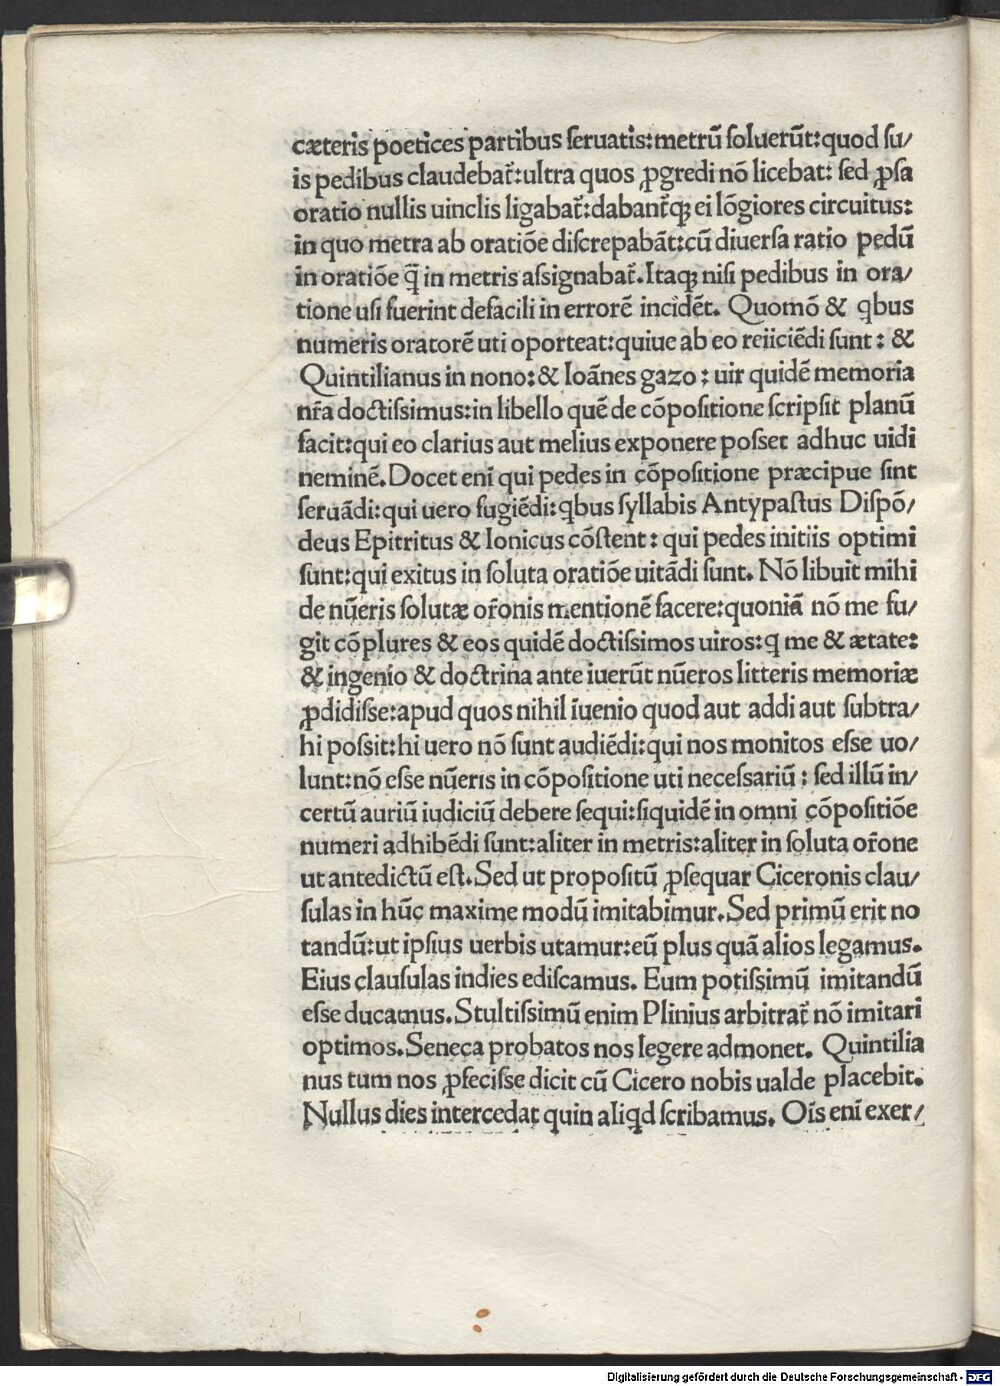 cæteris poetices partibus ſeruatis:metrū ſoluerūt:quod ſu/
is pedibus claudebat̄:ultra quos ꝓgredi nō licebat: ſed ꝓſa
oratio nullis uinclis ligabat̄:dabant̄qꝫ ei lōgiores circuitus:
in quo metra ab oratiōe diſcrepabāt:cū diuerſa ratio pedū
in oratiōe q̄ in metris aſsignabat̄.Itaqꝫ niſi pedibus in ora/
tione uſi fuerint defacili in errorē incidēt. Quomō & qbus
numeris oratorē uti oporteat:quiue ab eo reiiciēdi ſunt: &
Quintilianus in nono:& Ioānes gazo: uir quidē memoria
nr̄a doctiſsimus:in libello quē de cōpoſitione ſcripſit planū
facit:qui eo clarius aut melius exponere poſset adhuc uidi
neminē.Docet enī qui pedes in cōpoſitione præcipue ſint
ſeruādi:qui uero fugiēdi:qbus ſyllabis Antypaſtus Diſpō/
deus Epitritus & Ionicus cōſtent: qui pedes initiis optimi
ſunt:qui exitus in ſoluta oratiōe uitādi ſunt. Nō libuit mihi
de nūeris ſolutæ or̄onis mentionē facere:quoniā nō me fu/
git cōplures & eos quidē doctiſsimos uiros:q me & ætate:
& ingenio & doctrina ante iuerūt nūeros litteris memoriæ
ꝓdidiſse:apud quos nihil īuenio quod aut addi aut ſubtra/
hi poſsit:hi uero nō ſunt audiēdi:qui nos monitos eſse uo/
lunt:nō eſse nūeris in cōpoſitione uti neceſsariū: ſed illū in/
certū auriū iudiciū debere ſequi:ſiquidē in omni cōpoſitiōe
numeri adhibēdi ſunt:aliter in metris:aliter in ſoluta or̄one
ut antedictū eſt.Sed ut propoſitū ꝓſequar Ciceronis clau/
ſulas in hūc maxime modū imitabimur.Sed primū erit no
tandū:ut ipſius uerbis utamur:eū plus quā alios legamus.
Eius clauſulas indies ediſcamus. Eum potiſsimū imitandū
eſse ducamus.Stultiſsimū enim Plinius arbitrat̄ nō imitari
optimos.Seneca probatos nos legere admonet. Quintilia
nus tum nos ꝓfeciſse dicit cū Cicero nobis ualde placebit.
Nullus dies intercedat quin aliqd ſcribamus. Oīs enī exer/
Digitalisierung gefördert durch die Deutsche Forschungsgemeinschaft - DFG